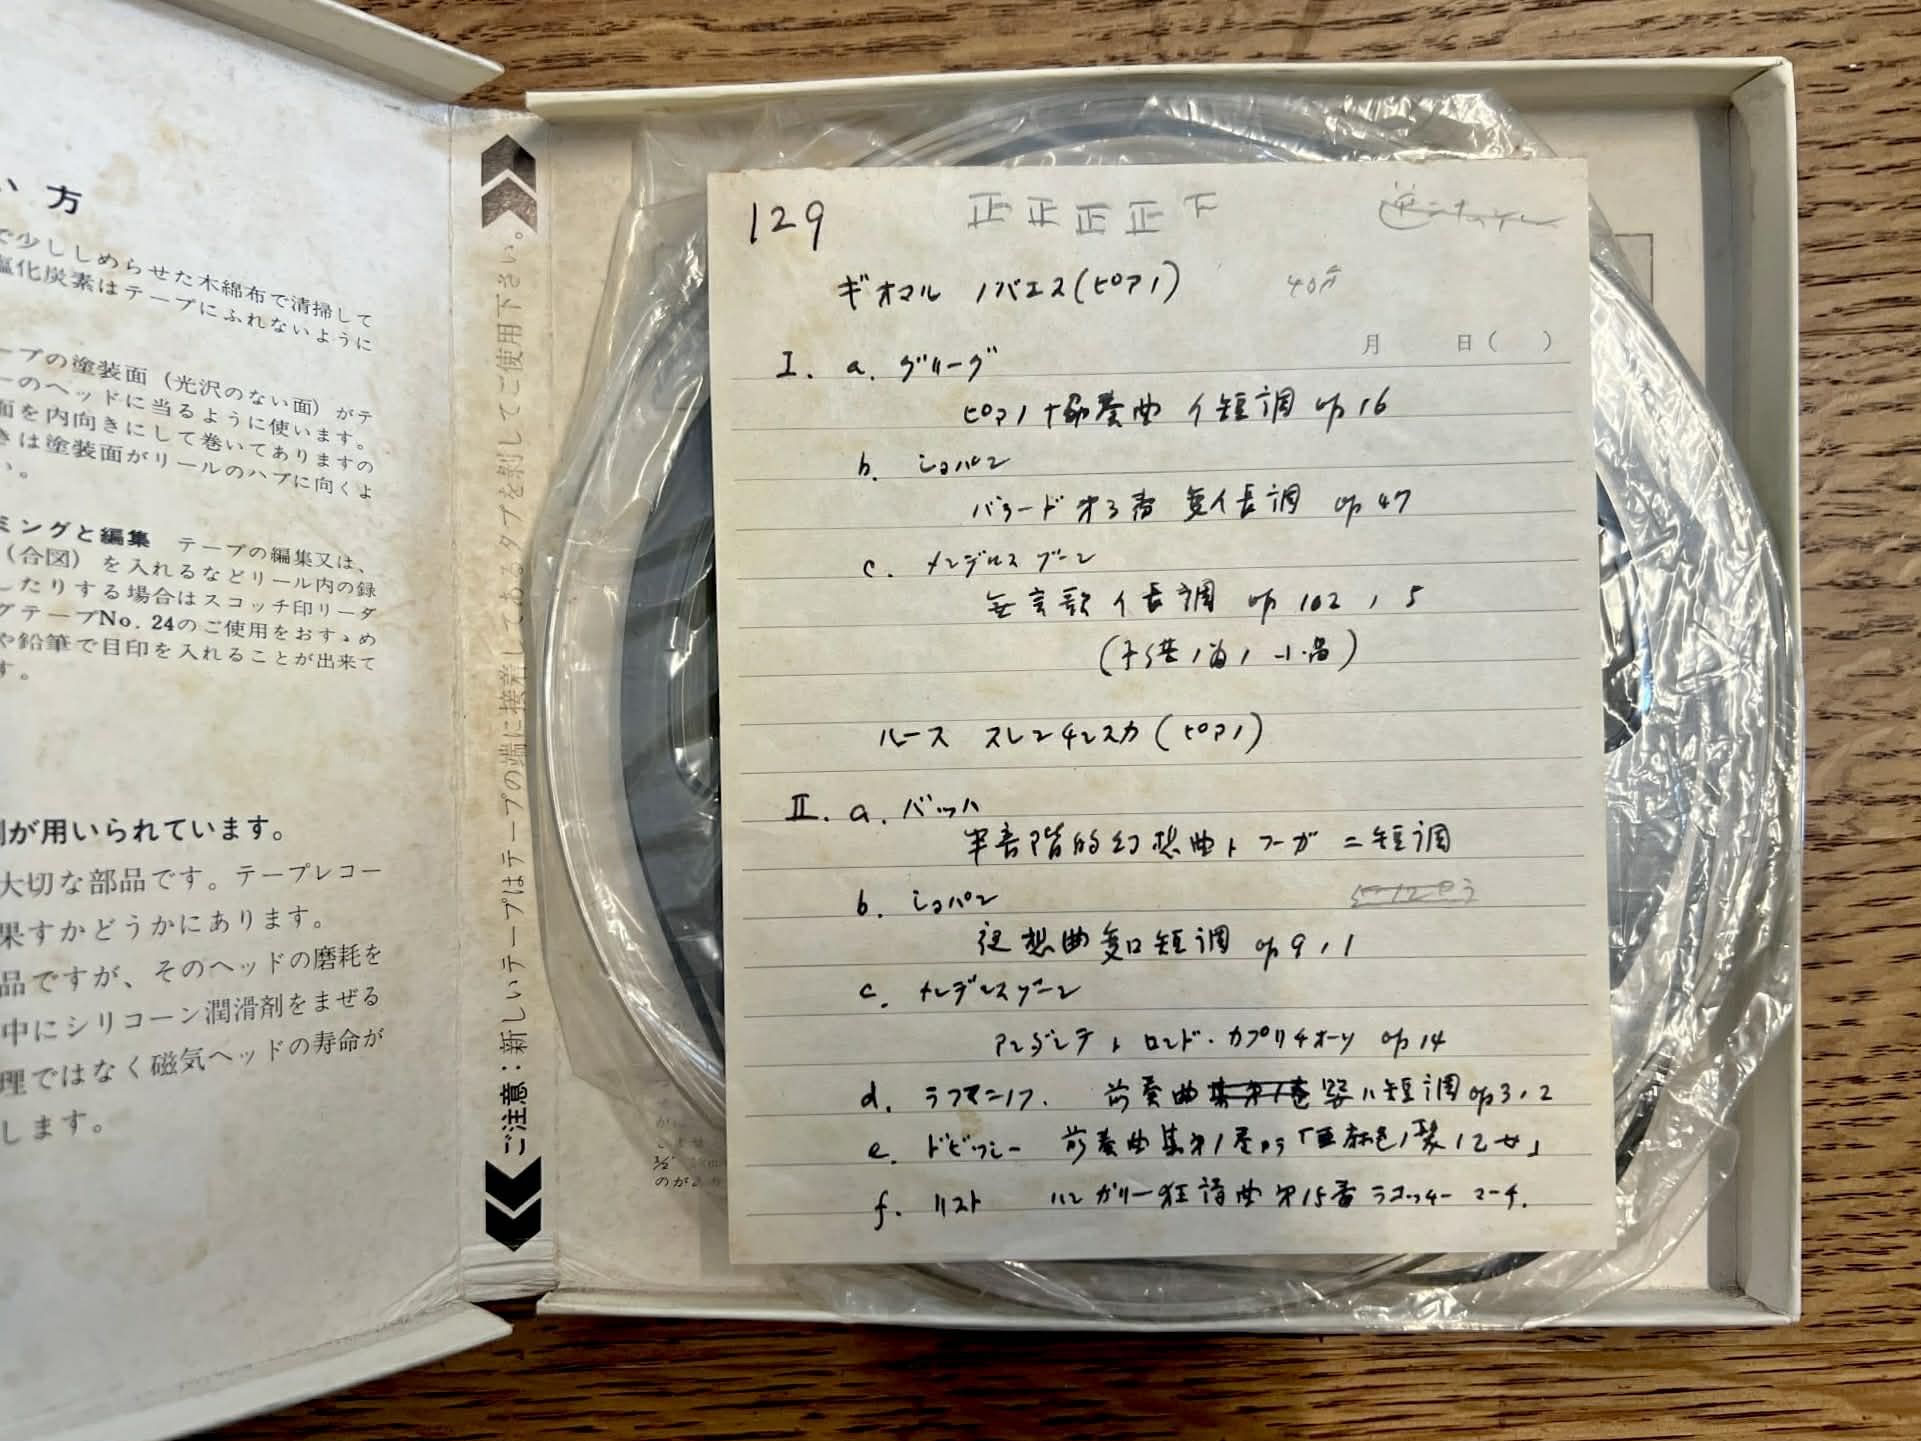 い方
で少ししめらせた木綿布で清掃して
塩化炭素はテープにふれないように
ープの塗装面（光沢のない面）がテ
ーのヘッドに当るように使います。
面を内向きにして巻いてありますの
きは塗装面がリールのハブに向くよ
い。
ミングと編集 テープの編集又は、
（合図）を入れるなどリール内の録
したりする場合はスコッチ印リーダ
グテープNo. 24のご使用をおすゝめ
や鉛筆で目印を入れることが出来て
す。
が用いられています。
大切な部品です。テープレコー
果すかどうかにあります。
品ですが、そのヘッドの磨耗を
中にシリコーン潤滑剤をまぜる
理ではなく磁気ヘッドの寿命が
します。
ご注意：新しいテープはテープの端に接着してあるタブを剝してご使用下さい。
129 正正正正下
ギオマル ノバエス(ピアノ) 40分
月 日( )
I. a. グリーグ
ピアノ協奏曲 イ短調 op 16
b. ショパン
バラード 第3番 変イ長調 op 47
c. メンデルスゾーン
無言歌 イ長調 op 102, 5
(子供ノ為ノ小品)
ルース スレンチンスカ(ピアノ)
II. a. バッハ
半音階的幻想曲トフーガ ニ短調
b. ショパン
夜想曲 変ロ短調 op 9, 1
c. メンデルスゾーン
アンダンテ ト ロンド・カプリチオーソ op 14
d. ラフマニノフ. 前奏曲 嬰ハ短調 op 3, 2
e. ドビッシー 前奏曲集第1巻から「亜麻色ノ髪ノ乙女」
f. リスト ハンガリー狂詩曲 第15番 ラコッチー マーチ.